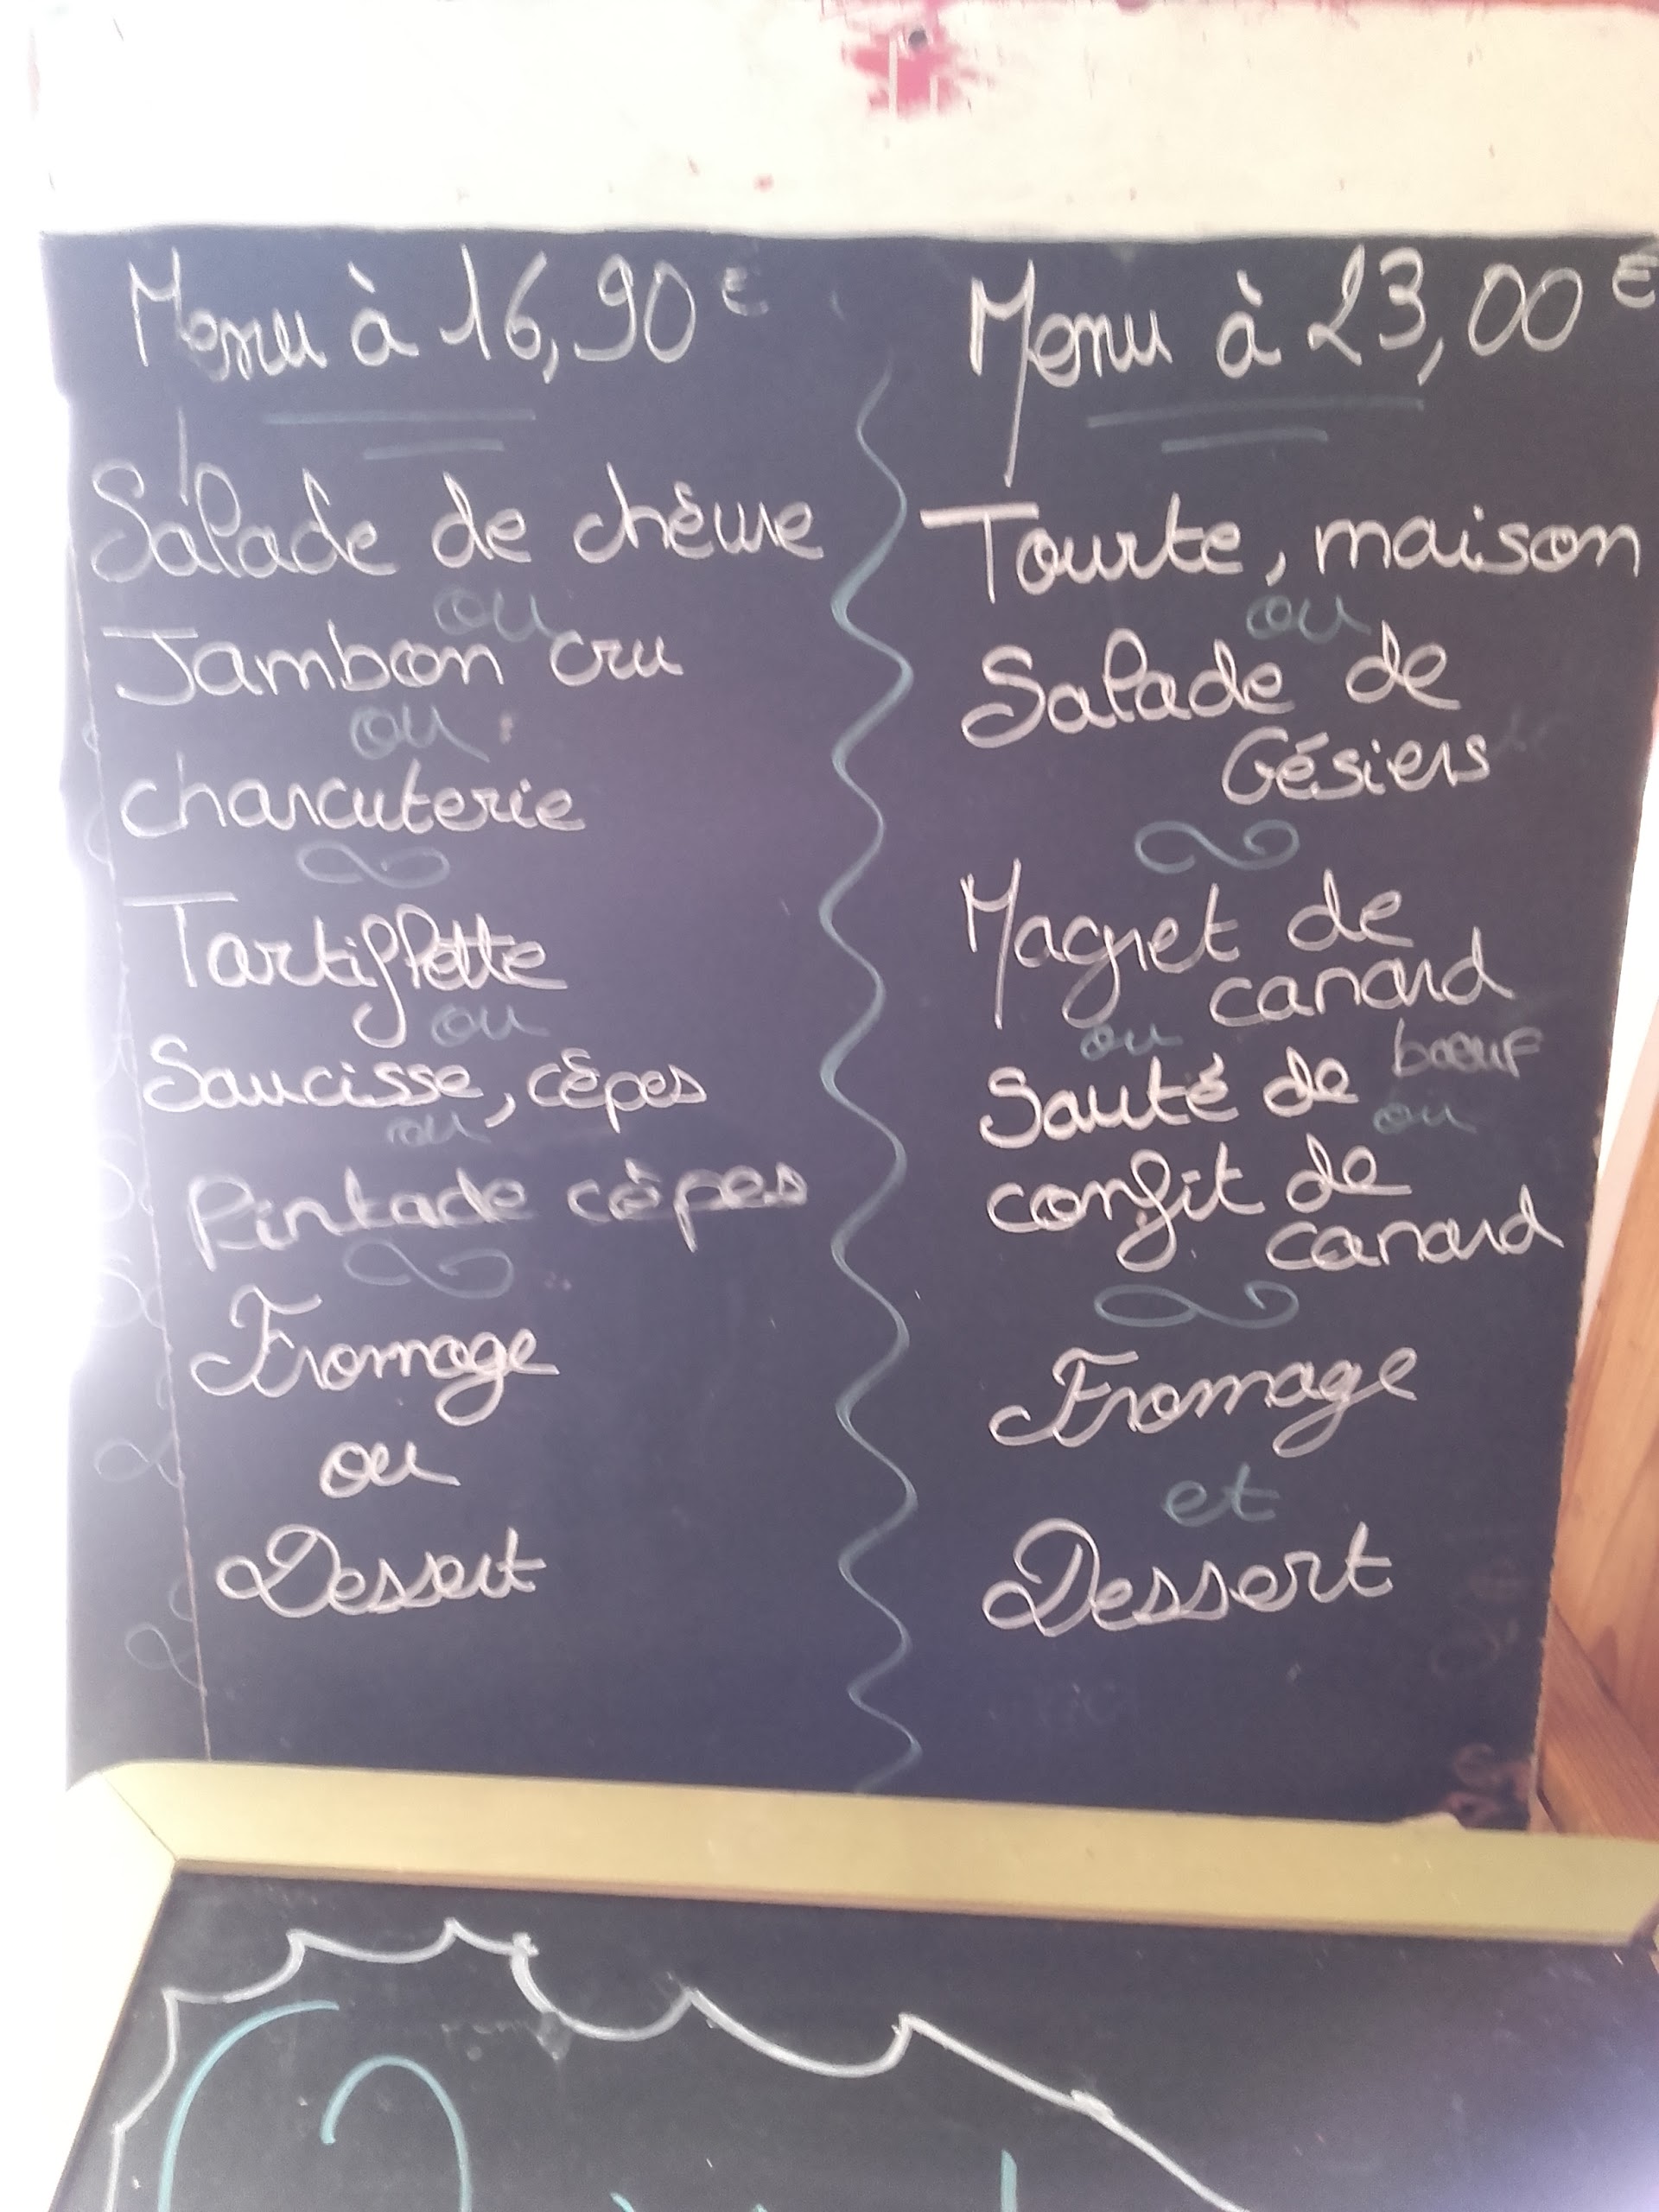 Menu à 16,90 €
Salade de chèvre
ou
Jambon cru
ou
charcuterie
Tartiflette
ou
Saucisse, cèpes
ou
Pintade cèpes
Fromage
ou
Dessert
Menu à 23,00 €
Tourte, maison
ou
Salade de
Gésiers
Magret de
canard
ou
Sauté de boeuf
ou
confit de
canard
Fromage
et
Dessert